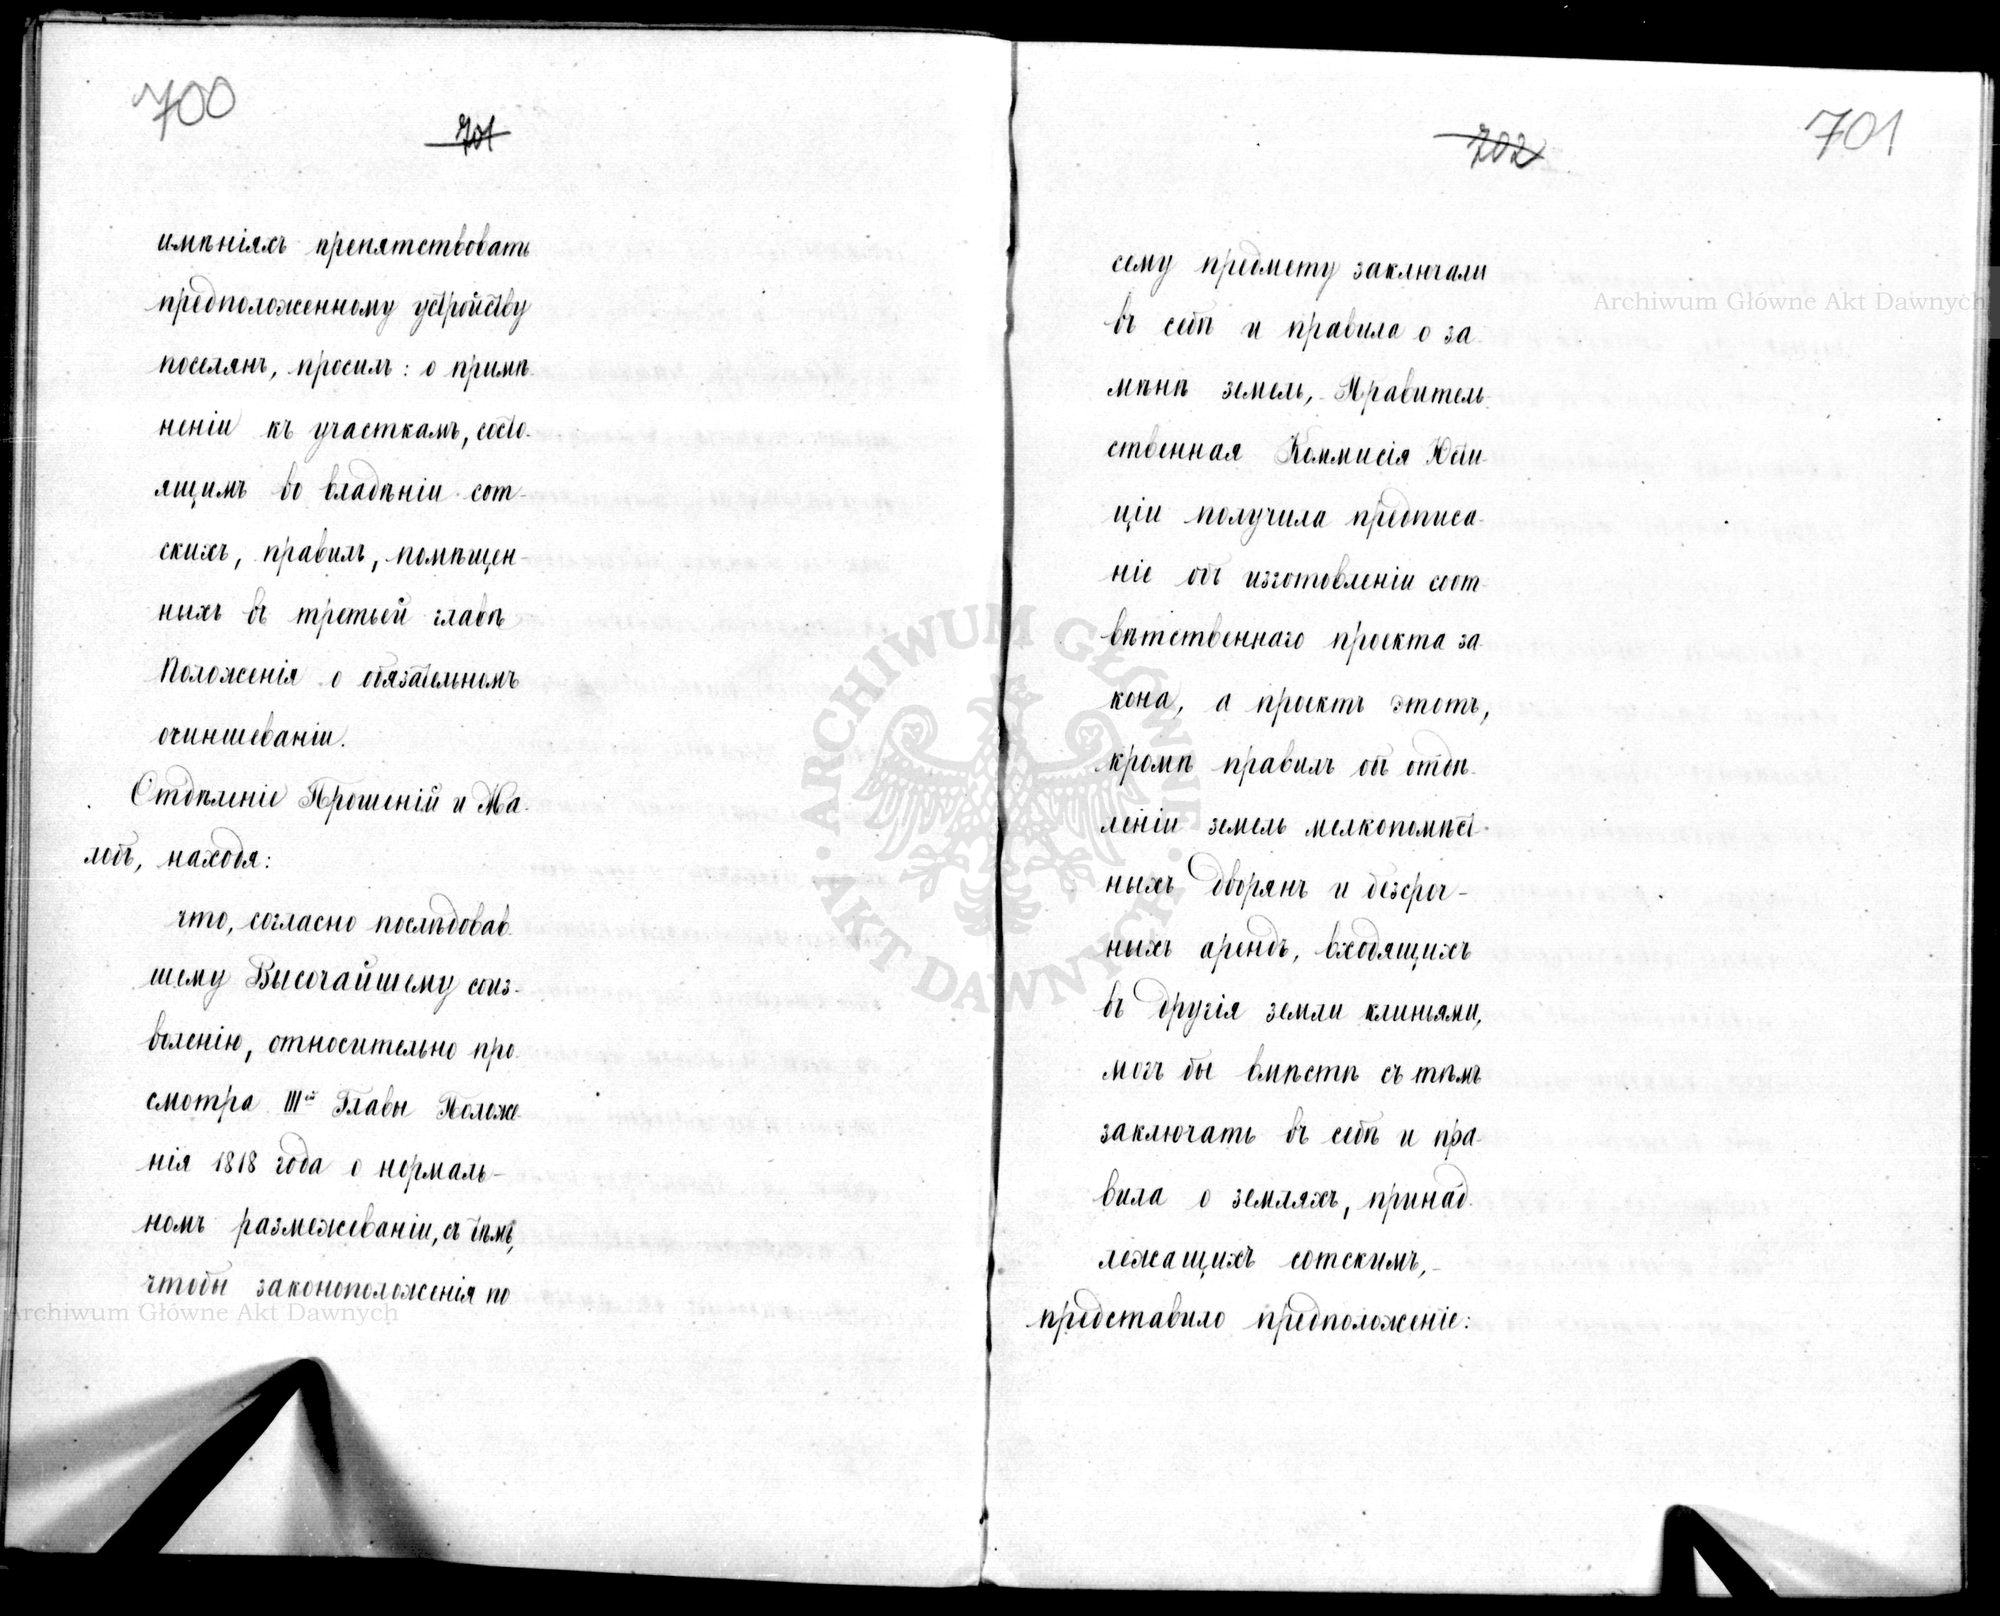 700
701
имѣніяхъ препятствовать
предположенному устройству
поселянъ, просилъ: о примѣ-
неніи къ участкамъ, состо-
ящимъ во владѣніи сот-
скихъ, правилъ, помѣщен-
ныхъ въ третьей главѣ
Положенія о обязательномъ
очиншеваніи.
Отдѣленіе Прошеній и Жа-
лобъ, находя:
что, согласно послѣдовав-
шему Высочайшему соиз-
воленію, относительно про-
смотра IIIей Главы Положе-
нія 1818 года о нормаль-
номъ размежеваніи, съ тѣмъ,
чтобы законоположенія по
702
701
сему предмету заключали
въ себѣ и правила о за-
мѣнѣ земель, Правитель-
ственная Коммисія Юсти-
ціи получила предписа-
ніе объ изготовленіи соот-
вѣтственнаго проекта за-
кона, а проектъ этотъ,
кромѣ правилъ объ отдѣ-
леніи земель мелкопомѣст-
ныхъ дворянъ и безсроч-
ныхъ арендъ, входящихъ
въ другія земли клиньями,
могъ бы вмѣстѣ съ тѣмъ
заключать въ себѣ и пра-
вила о земляхъ, принад-
лежащихъ сотскимъ,-
представило предположеніе:
Archiwum Główne Akt Dawnych
Archiwum Główne Akt Dawnych
ARCHIWUM GŁÓWNE AKT DAWNYCH